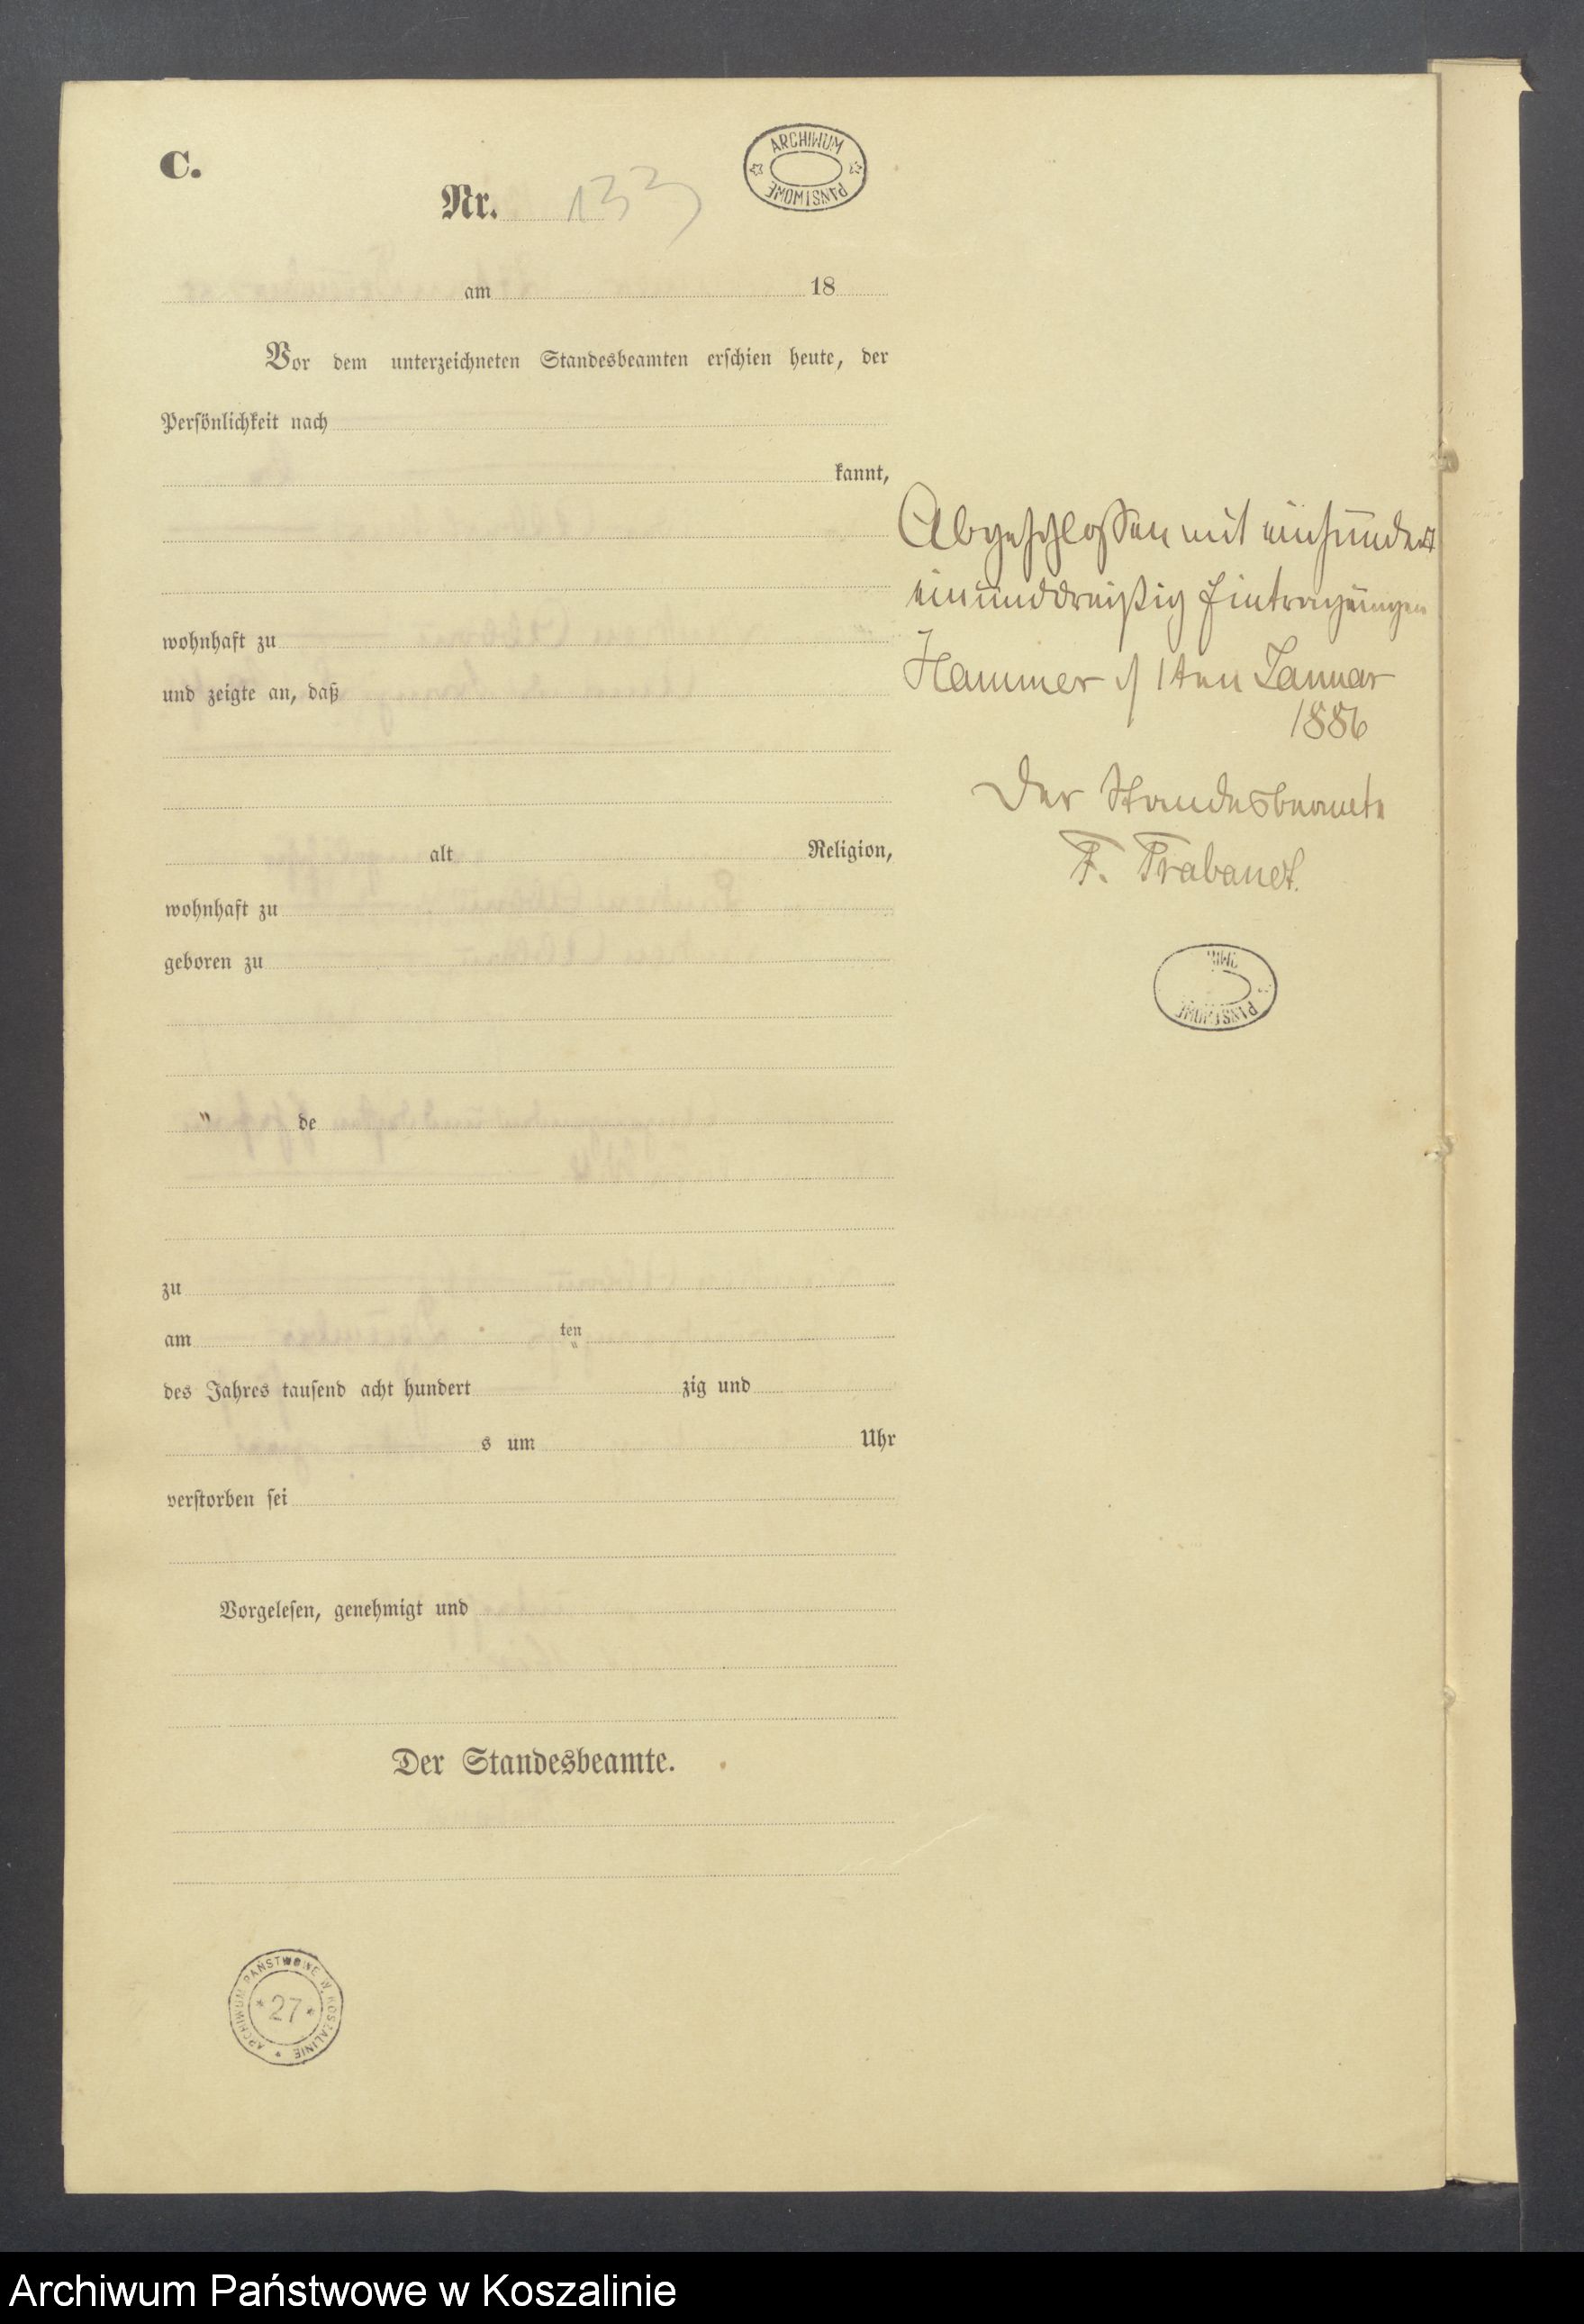 C.
ARCHIWUM PAŃSTWOWE
Nr. 133
am 18
Vor dem unterzeichneten Standesbeamten erschien heute, der
Persönlichkeit nach
kannt,
wohnhaft zu
und zeigte an, daß
alt Religion,
wohnhaft zu
geboren zu
" de
zu
am ten
"
des Jahres tausend acht hundert zig und
s um Uhr
verstorben sei
Vorgelesen, genehmigt und
Der Standesbeamte.
Abgeschlossen mit einhundert
einunddreißig Eintragungen
Hammer 1ten Januar
1886
Der Standesbeamte
F.
PAŃSTWOWE
ARCHIWUM PAŃSTWOWE W KOSZALINIE
* 27 *
Archiwum Państwowe w Koszalinie